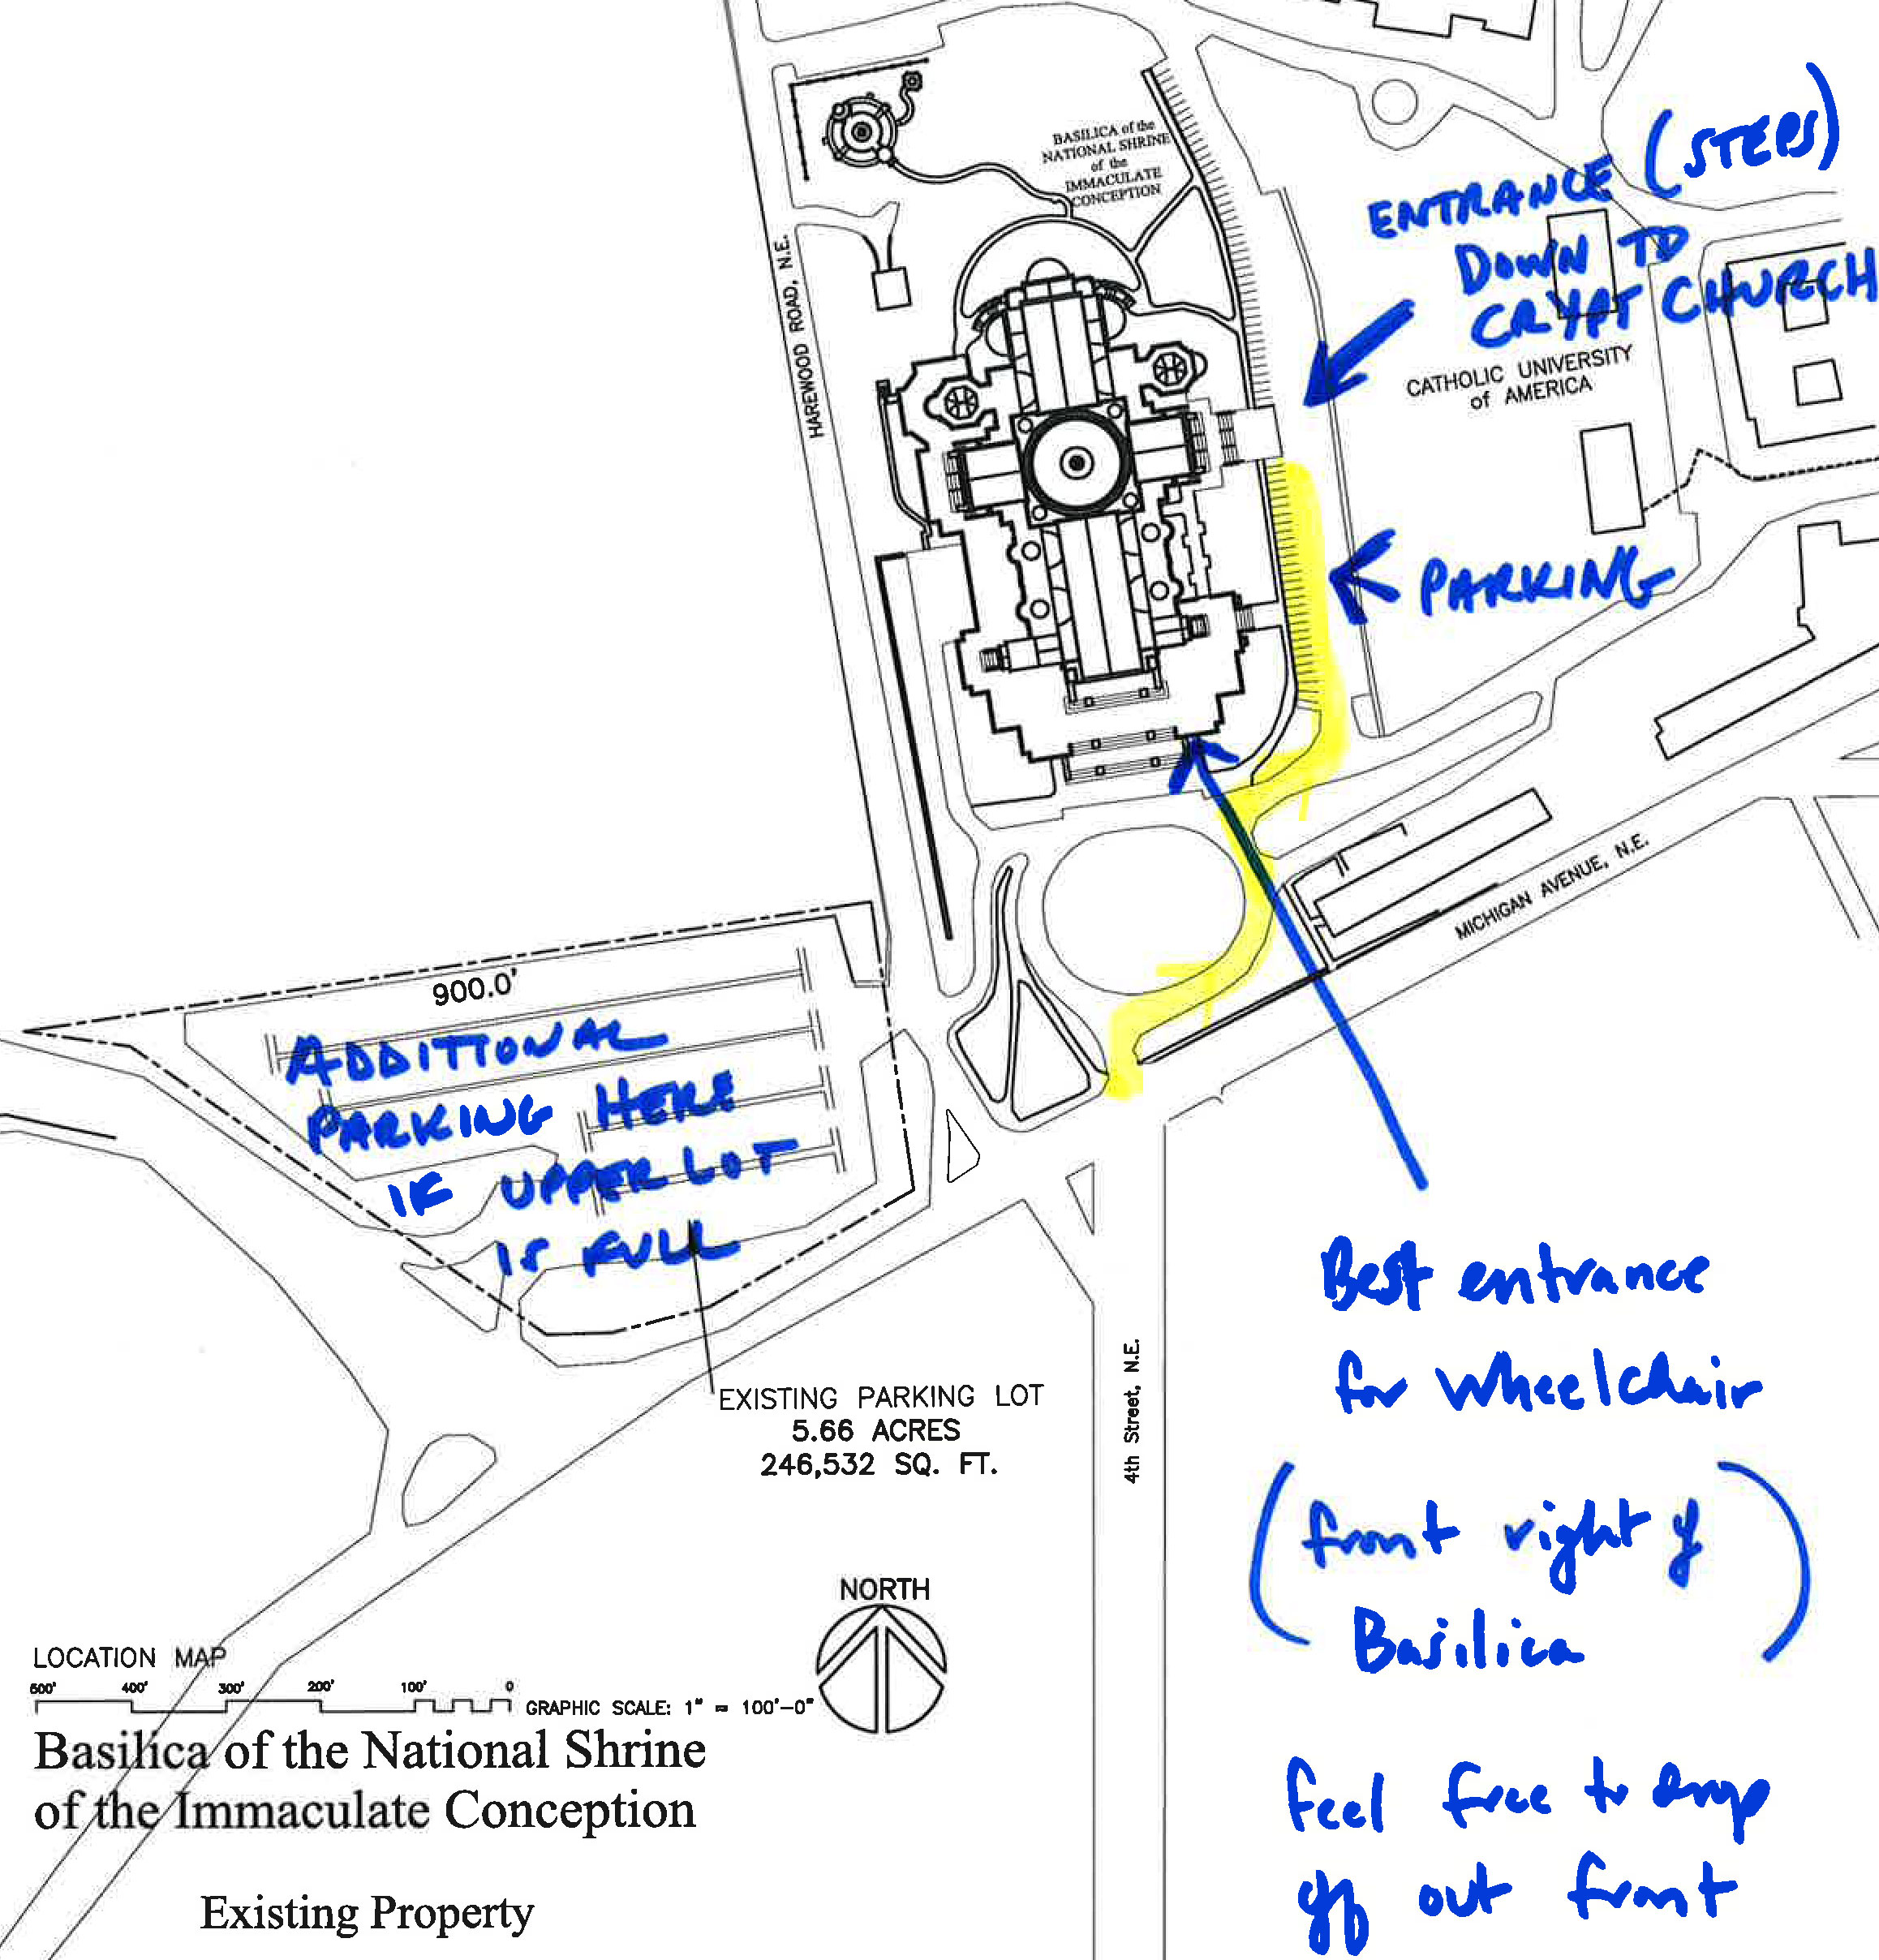 BASILICA of the
NATIONAL SHRINE
of the
IMMACULATE
CONCEPTION
ENTRANCE (STEPS)
DOWN TO
CRYPT CHURCH
HAREWOOD ROAD, N.E.
CATHOLIC UNIVERSITY
of AMERICA
PARKING
MICHIGAN AVENUE, N.E.
900.0'
ADDITIONAL
PARKING HERE
IF UPPER LOT
IS FULL
EXISTING PARKING LOT
5.66 ACRES
246,532 SQ. FT.
4th Street, N.E.
Best entrance
for wheelchair
(front right of
Basilica)
feel free to drop
off out front
NORTH
LOCATION MAP
500' 400' 300' 200' 100' 0
GRAPHIC SCALE: 1" = 100'-0"
Basilica of the National Shrine
of the Immaculate Conception
Existing Property